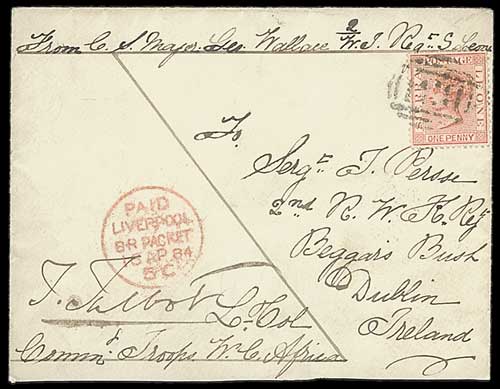 From C. S. Major. Geo. Wallace 2/W. I. Regt. S. Leone
POSTAGE
SIERRA LEONE
ONE PENNY
To
Sergt. T. Persse
2nd R. W. K. Regt
Beggars Bush
Dublin
Ireland
PAID
LIVERPOOL
BR PACKET
15 AP 84
5C
T. Talbot Lt. Col
Commg. Troops W. C. Africa